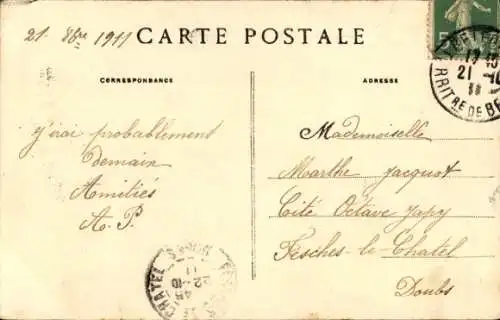 21 8bre 1911 CARTE POSTALE
CORRESPONDANCE
ADRESSE
j'irai probablement
demain
Amitiés
A. P.
Mademoiselle
Marthe Jacquot
Cité Octave Japy
Fesches-le-Chatel
Doubs
5
21 -10
RRITRE DE BE
CHATEL